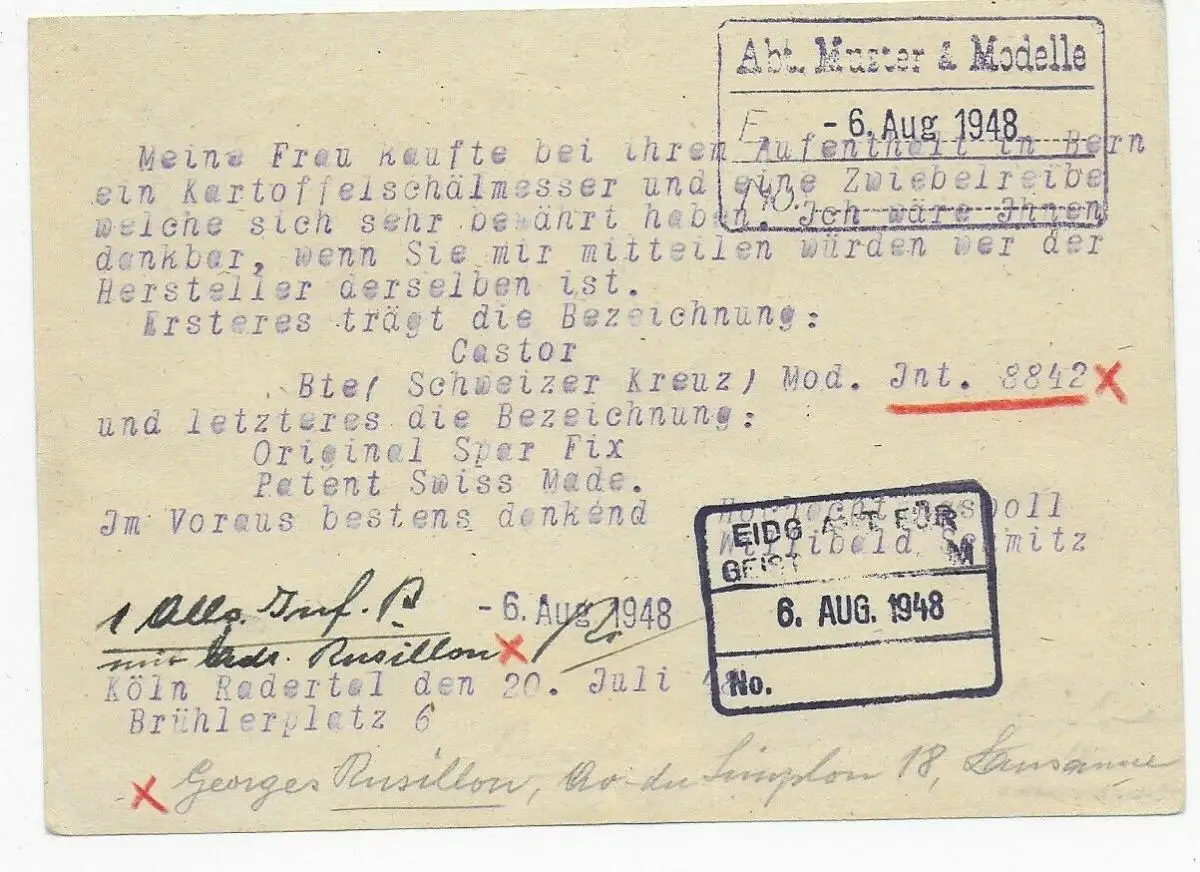 Abt. Muster & Modelle
- 6. Aug 1948
Meine Frau kaufte bei ihrem Aufenthalt in Bern
ein Kartoffelschälmesser und eine Zwiebelreibe
welche sich sehr bewährt haben. Ich wäre Ihnen
dankbar, wenn Sie mir mitteilen würden wer der
Hersteller derselben ist.
Ersteres trägt die Bezeichnung:
Castor
Bte( Schweizer Kreuz) Mod. Int. 8842 x
und letzteres die Bezeichnung:
Original Spar Fix
Patent Swiss Made.
Im Voraus bestens dankend Hochachtungsvoll
Willibald Schmitz
EIDG AMT FÜR
GEIST
6. AUG. 1948
No.
1 Allg. Inf. P
- 6. Aug 1948
mit Adr. Rusillon x
Köln Radertal den 20. Juli 48
Brühlerplatz 6
x Georges Rusillon, Av. du Simplon 18, Lausanne